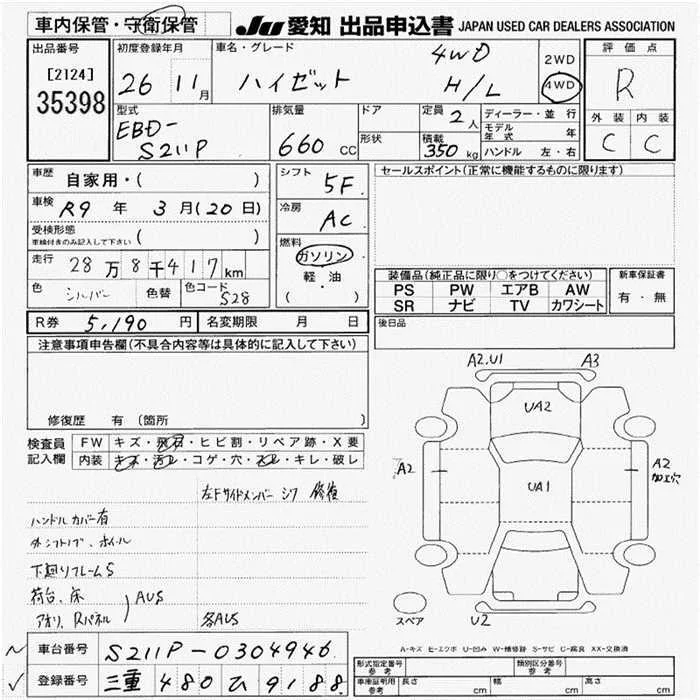 車内保管・守衛保管
JU 愛知 出品申込書 JAPAN USED CAR DEALERS ASSOCIATION
出品番号
[2124]
35398
初度登録年月
26 11月
車名・グレード
ハイゼット
4WD
H/L
2WD
4WD
評価点
R
外装 内装
C C
型式
EBD-
S211P
排気量
660 CC
ドア
形状
定員 2人
積載 350 kg
ディーラー・並行
モデル年式 年
ハンドル 左・右
車歴
自家用・( )
車検 R9年 3月(20日)
受検形態
車検付きのみ記入して下さい ( )
走行 28万8千417km
色 シルバー 色替 色コード S28
シフト 5F
冷房 AC
燃料
ガソリン
軽・油
( ・ )
セールスポイント(正常に機能するものに限ります)
装備品(純正品に限り○をつけてください)
PS PW エアB AW
SR ナビ TV カワシート
新車保証書
有・無
R券 5,190円 名変期限 月 日
後日品
注意事項申告欄(不具合内容等は具体的に記入して下さい)
修復歴 有(箇所 )
検査員
記入欄
FW キズ・飛石・ヒビ割・リペア跡・X要
内装 キズ・汚レ・コゲ・穴・スレ・キレ・破レ
左Fサイドメンバー シワ 修復
ハンドルカバー有
外シフトノブ、ホイール
下廻りフレームS
荷台、床
アオリ、Rパネル
AUS
各AUS
A2,U1 A3
UA2
A2
UA1
A2
加工穴
スペア
U2
A-キズ E-エクボ U-凹み W-補修跡 S-サビ C-腐食 XX-交換済
車台番号 S211P-0304946
登録番号 三重 480 ひ 9188
型式指定番号
参考
類別区分番号
参考
車庫証明用
参考
長さ cm 幅 cm 高さ cm